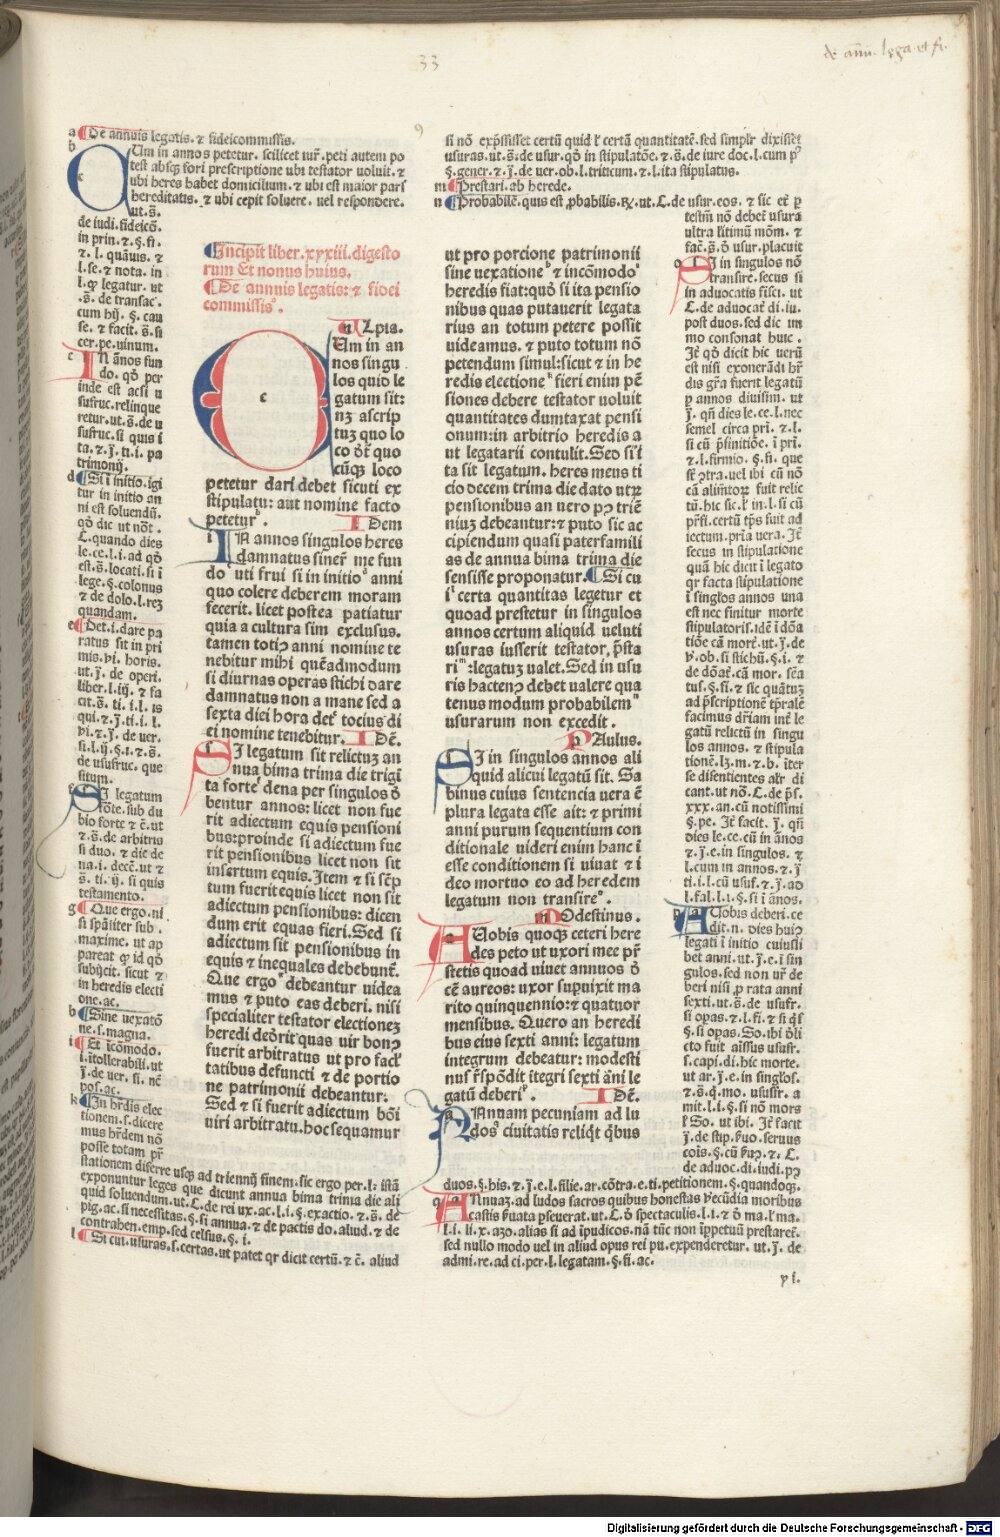 33
de annu. lega. et fi.
De annuis legatis. ⁊ fideicommissis.
Um in annos petetur. scilicet iur̃. peti autem po
test absq̃ fori prescriptione ubi testator voluit. ⁊
ubi heres habet domicilium. ⁊ ubi est maior pars
hereditatis. ⁊ ubi cepit soluere. uel respondere.
ut. s̃.
de iudi. fideicõ.
in prin. ⁊. §. fi.
⁊. l. quãuis. ⁊
l. se. ⁊ nota. in
l. ꝙ legatur. ut
.s̃. de transac̃.
cum hij. §. cau
se. ⁊ facit. s̃. si
cer. pe. uinum.
IN ãnos fun
do. qđ per
inde est acsi u
susfruc. relinque
retur. ut. s̃. de u
sufruc. si quis i
ta. ⁊. j̃. ti. i. pa
trimonij.
Si i initio. igi
tur in initio an
ni est soluendũ.
qđ dic ut nõt̃.
C. quando dies
le. ce. l. i. ad qđ
est. s̃. locati. si i
lege. §. colonus
⁊ de dolo. l. reȝ
quandam.
Det. i. dare pa
ratus sit in pri
mis. vi. horis.
ut. j̃. de operi.
liber. l. iij. ⁊ fa
cit. s̃. ti. i. l. is
qui. ⁊. j̃. ti. i. l.
vi. ⁊. j̃. de ver.
si. l. ij. §. i. ⁊. s̃.
de ususfruc. que
situm.
SI legatum
fõte. sub du
bio forte ⁊ c̃. ut
⁊. s̃. de arbitris
si duo. ⁊ dic de
na. i. decẽ. ut ⁊
s̃. ti. ij. si quis
testamento.
Que ergo. ni
si spãliter sub.
maxime. ut ap
pareat ꝙ id qđ
subijcit. sicut ⁊
in heredis electi
one. ac.
Sine uexatõ
ne. s. magna.
Et icõmodo.
i. itollerabili. ut
j̃. de ver. si. nẽ
pos. ac.
In hr̃dis elec
tionem. s. dicere
mus hr̃dem nõ
posse totam pr̃
stationem diferre usq̃ ad triennij finem. sic ergo per. l. istã
exponuntur leges que dicunt annua bima trima die ali
quid soluendum. ut. C. de rei ux. ac. l. i. §. exactio. ⁊. s̃. de
pig. ac. si necessitas. §. si annua. ⁊ de pactis do. aliud. ⁊ de
contrahen. emp. sed celsus. §. i.
Si cui. usuras. s. certas. ut patet qr dicit certũ. ⁊ c̃. aliud
Incipit liber. xxxiii. digesto
rum Et nonus huius.
De annuis legatis: ⁊ fidei
commissis.
Ulpia.
Um in an
nos singu
los quid le
gatum sit:
nȝ ascrip
tuȝ quo lo
co đt̃ quo
cũqȝ loco
petetur dari debet sicuti ex
stipulatu: aut nomine facto
petetur. Idem
IN annos singulos heres
damnatus siner̃ me fun
do uti frui si in initio anni
quo colere deberem moram
fecerit. licet postea patiatur
quia a cultura sim exclusus.
tamen totiꝰ anni nomine te
nebitur mihi quẽadmodum
si diurnas operas stichi dare
damnatus non a mane sed a
sexta diei hora det̃ tocius di
ei nomine tenebitur. Idẽ.
SI legatum sit relictuȝ an
nua bima trima die trigi
ta forte dena per singulos đ
bentur annos: licet non fue
rit adiectum equis pensioni
bus: proinde si adiectum fue
rit pensionibus licet non sit
insertum equis. Item ⁊ si scp̃
tum fuerit equis licet non sit
adiectum pensionibus: dicen
dum erit equas fieri. Sed si
adiectum sit pensionibus in
equis ⁊ inequales debebunt̃.
Que ergo debeantur videa
mus ⁊ puto eas deberi. nisi
specialiter testator electioneȝ
heredi deđrit quas uir bonꝰ
fuerit arbitratus ut pro facl̃
tatibus defuncti ⁊ de portio
ne patrimonii debeantur:
Sed ⁊ si fuerit adiectum bõi
uiri arbitratu. hoc sequamur
ut pro porcione patrimonii
sine uexatione ⁊ incõmodo
heredis fiat: quođ si ita pensio
nibus quas putauerit legata
rius an totum petere possit
uideamus. ⁊ puto totum nõ
petendum simul: sicut ⁊ in he
redis electione fieri enim pẽ
siones debere testator uoluit
quantitates dumtaxat pensi
onum: in arbitrio heredis a
ut legatarii contulit. Sed si i
ta sit legatum. heres meus ti
cio decem trima die dato utꝝ
pensionibus an uero pꝰ triẽ
niuȝ debeantur: ⁊ puto sic ac
cipiendum quasi paterfamili
as de annua bima trima die
sensisse proponatur. Si cu
i certa quantitas legetur et
quoad prestetur in singulos
annos certum aliquid ueluti
usuras iusserit testator, p̃sta
ri: legatuȝ ualet. Sed in usu
ris hactenꝰ debet ualere qua
tenus modum probabilem
usurarum non excedit.
Paulus.
SI in singulos annos ali
quid alicui legatũ sit. Sa
binus cuius sentencia uera ẽ
plura legata esse ait: ⁊ primi
anni purum sequentium con
ditionale uideri enim hanc i
esse conditionem si uiuat ⁊ i
deo mortuo eo ad heredem
legatum non transire.
Modestinus.
A Uobis quoqȝ ceteri here
des peto ut uxori mee pr̃
stetis quoad uiuet annuos đ
cẽ aureos: uxor supuixit ma
rito quinquennio: ⁊ quatuor
mensibus. Quero an heredi
bus eius sexti anni: legatum
integrum debeatur: modesti
nus r̃spõdit itegri sexti ãni le
gatũ deberi. Idẽ.
ANnuam pecuniam ad lu
dos ciuitatis reliq̃t q̃bus
si nõ exp̃ssisset certũ quid l̃ certã quantitatẽ. sed simplr̃ dixisset
usuras. ut. s̃. de usur. qđ in stipulatõe. ⁊. s̃. de iure doc. l. cum pꝰ
§. gener. ⁊. j̃. de ver. ob. l. triticum. ⁊. l. ita stipulatus.
Prestari. ab herede.
Probabilẽ. quis est ꝓbabilis. ℞. ut. C. de usur. eos. ⁊ sic et̃ p
testm̃ nõ debet̃ usura
ultra l̃itimũ mõm. ⁊
fac̃. s̃. đ usur. placuit
SI in singulos nõ
transire. secus si
in aduocatis fisci. ut
C. de aduocat̃ di. iu.
post duos. sed dic im
mo consonat huic.
It̃ qđ dicit hic uerũ
est nisi exonerãdi hr̃
dis gr̃a fuerit legatũ
p annos diuisim. ut
j̃. qñ dies le. ce. l. nec
semel circa pri. ⁊. l.
si cũ p̃finitiõe. i pri.
⁊. l. firmio. §. fi. que
st̃ ↄtra. uel ibi cũ nõ
cã alim̃toꝝ fuit relic
tũ. hic sic. l̃ in. l. si cũ
pr̃fi. certũ tp̃s fuit ad
iectum. pr̃ia vera. It̃
secus in stipulatione
quã hic dicit i legato
qr facta stipulatione
i singlos annos una
est nec finitur morte
stipulatoris. idẽ i dõa
tiõe cã mort̃. ut. j̃. de
v̾. ob. si stichũ. §. i. ⁊
de dõat̃. cã mor. sẽa
tus. §. fi. ⁊ sic quãtuȝ
ad p̃scriptionẽ tp̃ralẽ
facimus dr̃iam int̃ le
gatũ relictũ in singu
los annos. ⁊ stipula
tionẽ. lȝ. m. ⁊. b. iter
se disentientes alr̃ di
cant. ut nõ. C. de p̃s.
xxx. an. cũ notissimi
§. pe. It̃ facit. j̃. qñ
dies le. ce. cũ in ãnos
⁊. j̃. e. in singulos. ⁊
l. cum in annos. ⁊. j̃
ti. i. l. cũ usuf. ⁊. j̃. ad
l. fal. l. i. §. si i ãnos.
A Uobis deberi. ce
dit. n. dies huiꝰ
legati i initio cuiusli
bet anni. ut. j̃. e. i sin
gulos. sed non ur̃ de
beri nisi ꝓ rata anni
sexti. ut. s̃. de ususfr.
si opas. ⁊. l. fi. ⁊ si q̃s
§. si opas. So. ibi đli
cto fuit aissus ususfr.
s. capi. di. hic morte.
ut ar. j̃. e. in singlos.
⁊. s̃. q. mo. ususfr. a
mit. l. i. §. si nõ mors
l̃ So. ut ibi. It̃ facit
j̃. de stip. s̃uo. seruus
cõis. §. cũ s̃uꝰ. ⁊. C.
de aduoc. di. iudi. pꝰ
duos. §. his. ⁊. j̃. e. l. filie. ar. cõtra. e. ti. petitionem. §. quandoqȝ.
ANnuaȝ. ad ludos sacros quibus honestas v̾ecũdia moribus
castis s̃uata ꝑseuerat. ut. C. đ spectaculis. l. i. ⁊ đ ma. l̃ ma.
l. i. li. x. aȝo. alias si ad ĩpudicos. nã tũc non ĩppetuũ prestaret̃.
sed nullo modo uel in aliud opus rei pu. expenderetur. ut. j̃. de
admi. re. ad ci. per. l. legatam. §. fi. ac.
y i.
Digitalisierung gefördert durch die Deutsche Forschungsgemeinschaft - DFG